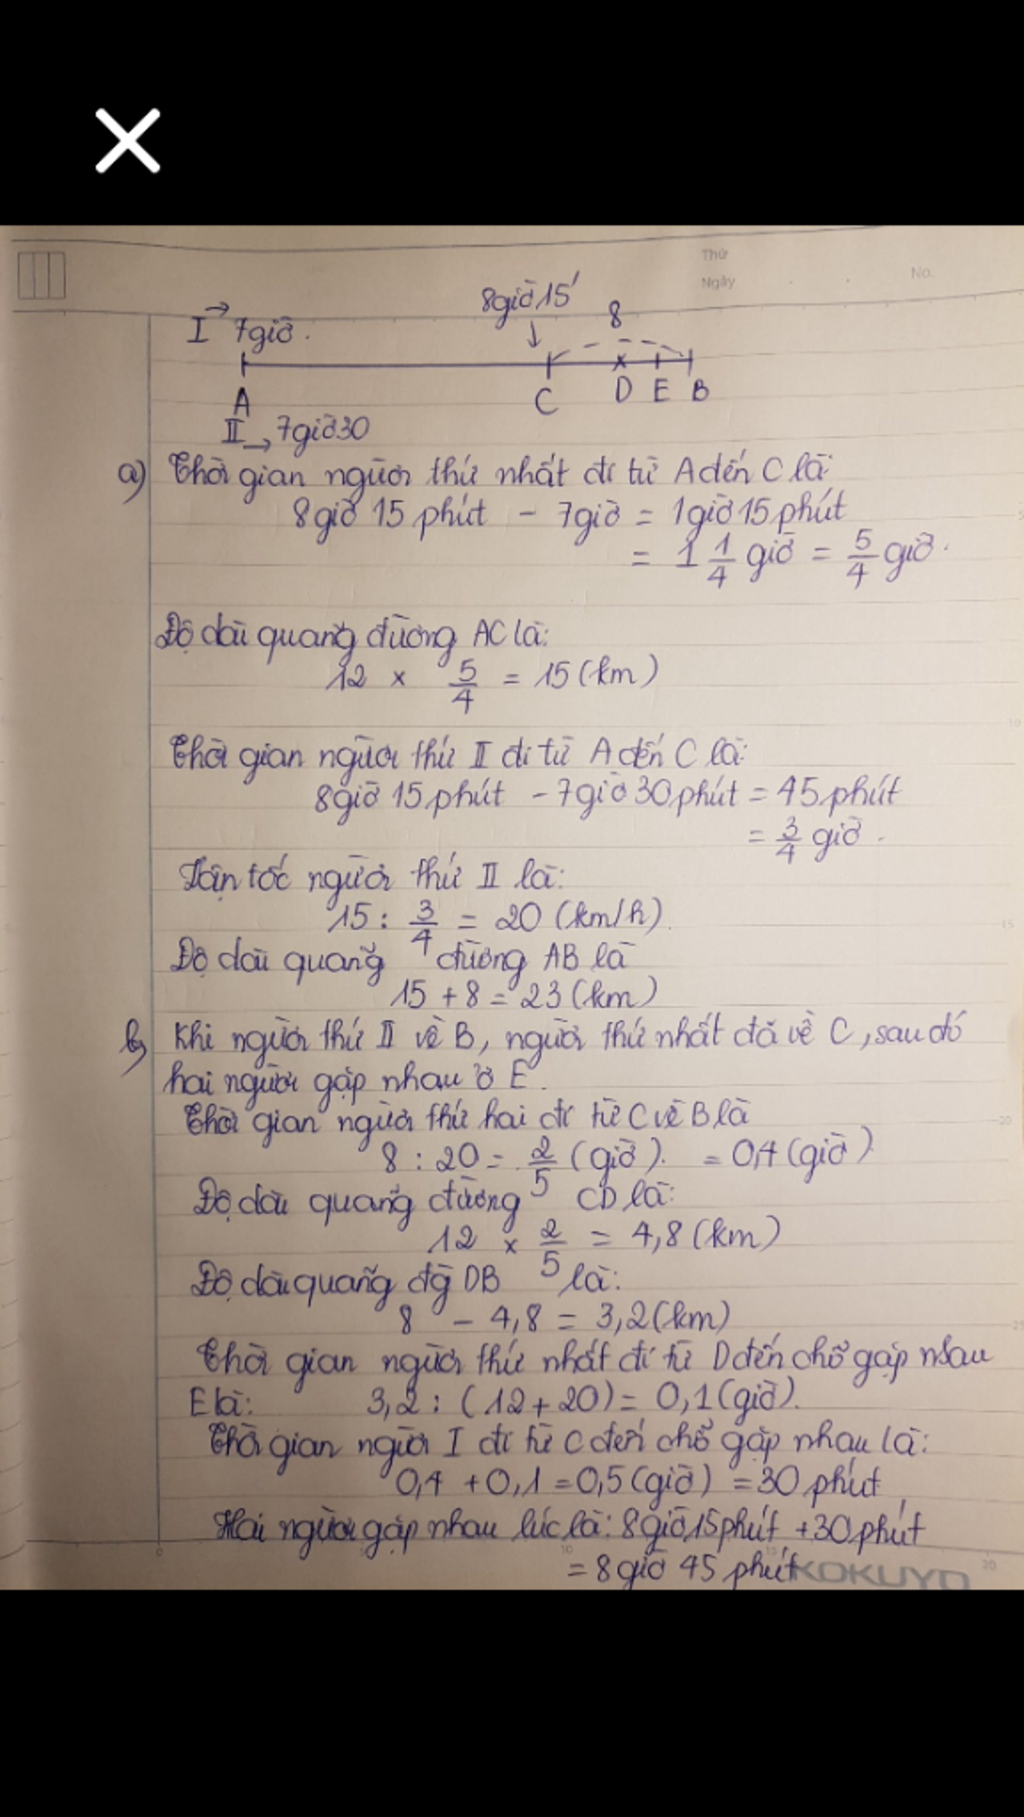 Thứ
Ngày
No.
8giờ15'
8
I → 7giờ.
A C D E B
II → 7giờ30
a) Thời gian người thứ nhất đi từ A đến C là:
8giờ 15 phút - 7giờ = 1giờ 15 phút
= 1 1/4 giờ = 5/4 giờ.
Độ dài quãng đường AC là:
12 × 5/4 = 15 (km)
Thời gian người thứ II đi từ A đến C là:
8giờ 15 phút - 7giờ 30 phút = 45 phút
= 3/4 giờ.
Vận tốc người thứ II là:
15 : 3/4 = 20 (km/h).
Độ dài quãng đường AB là
15 + 8 = 23 (km)
b) Khi người thứ II về B, người thứ nhất đã về C, sau đó
hai người gặp nhau ở E.
Thời gian người thứ hai đi từ C về B là
8 : 20 = 2/5 (giờ). = 0,4 (giờ)
Độ dài quãng đường CD là:
12 × 2/5 = 4,8 (km)
Độ dài quãng đg DB là:
8 - 4,8 = 3,2 (km)
Thời gian người thứ nhất đi từ D đến chỗ gặp nhau
E là: 3,2 : (12 + 20) = 0,1 (giờ).
Thời gian người I đi từ C đến chỗ gặp nhau là:
0,4 + 0,1 = 0,5 (giờ) = 30 phút
Hai người gặp nhau lúc là: 8giờ 15 phút + 30 phút
= 8 giờ 45 phút
KOKUYO